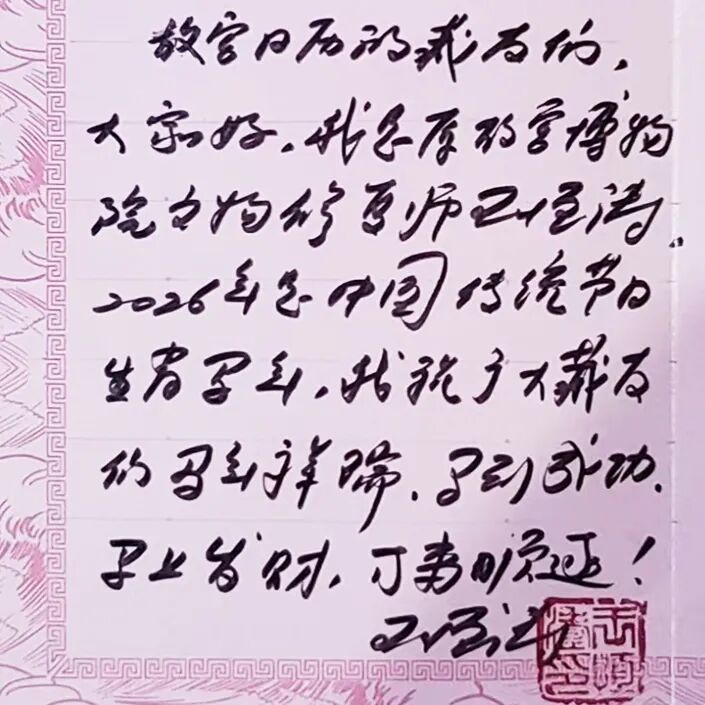 故宫日历的藏友们，
大家好。我是原故宫博物
院文物修复师王
2026年是中国传统节日
生肖马年，我祝广大藏友
们马年祥瑞、马到成功、
马上发财，万事顺遂！
王